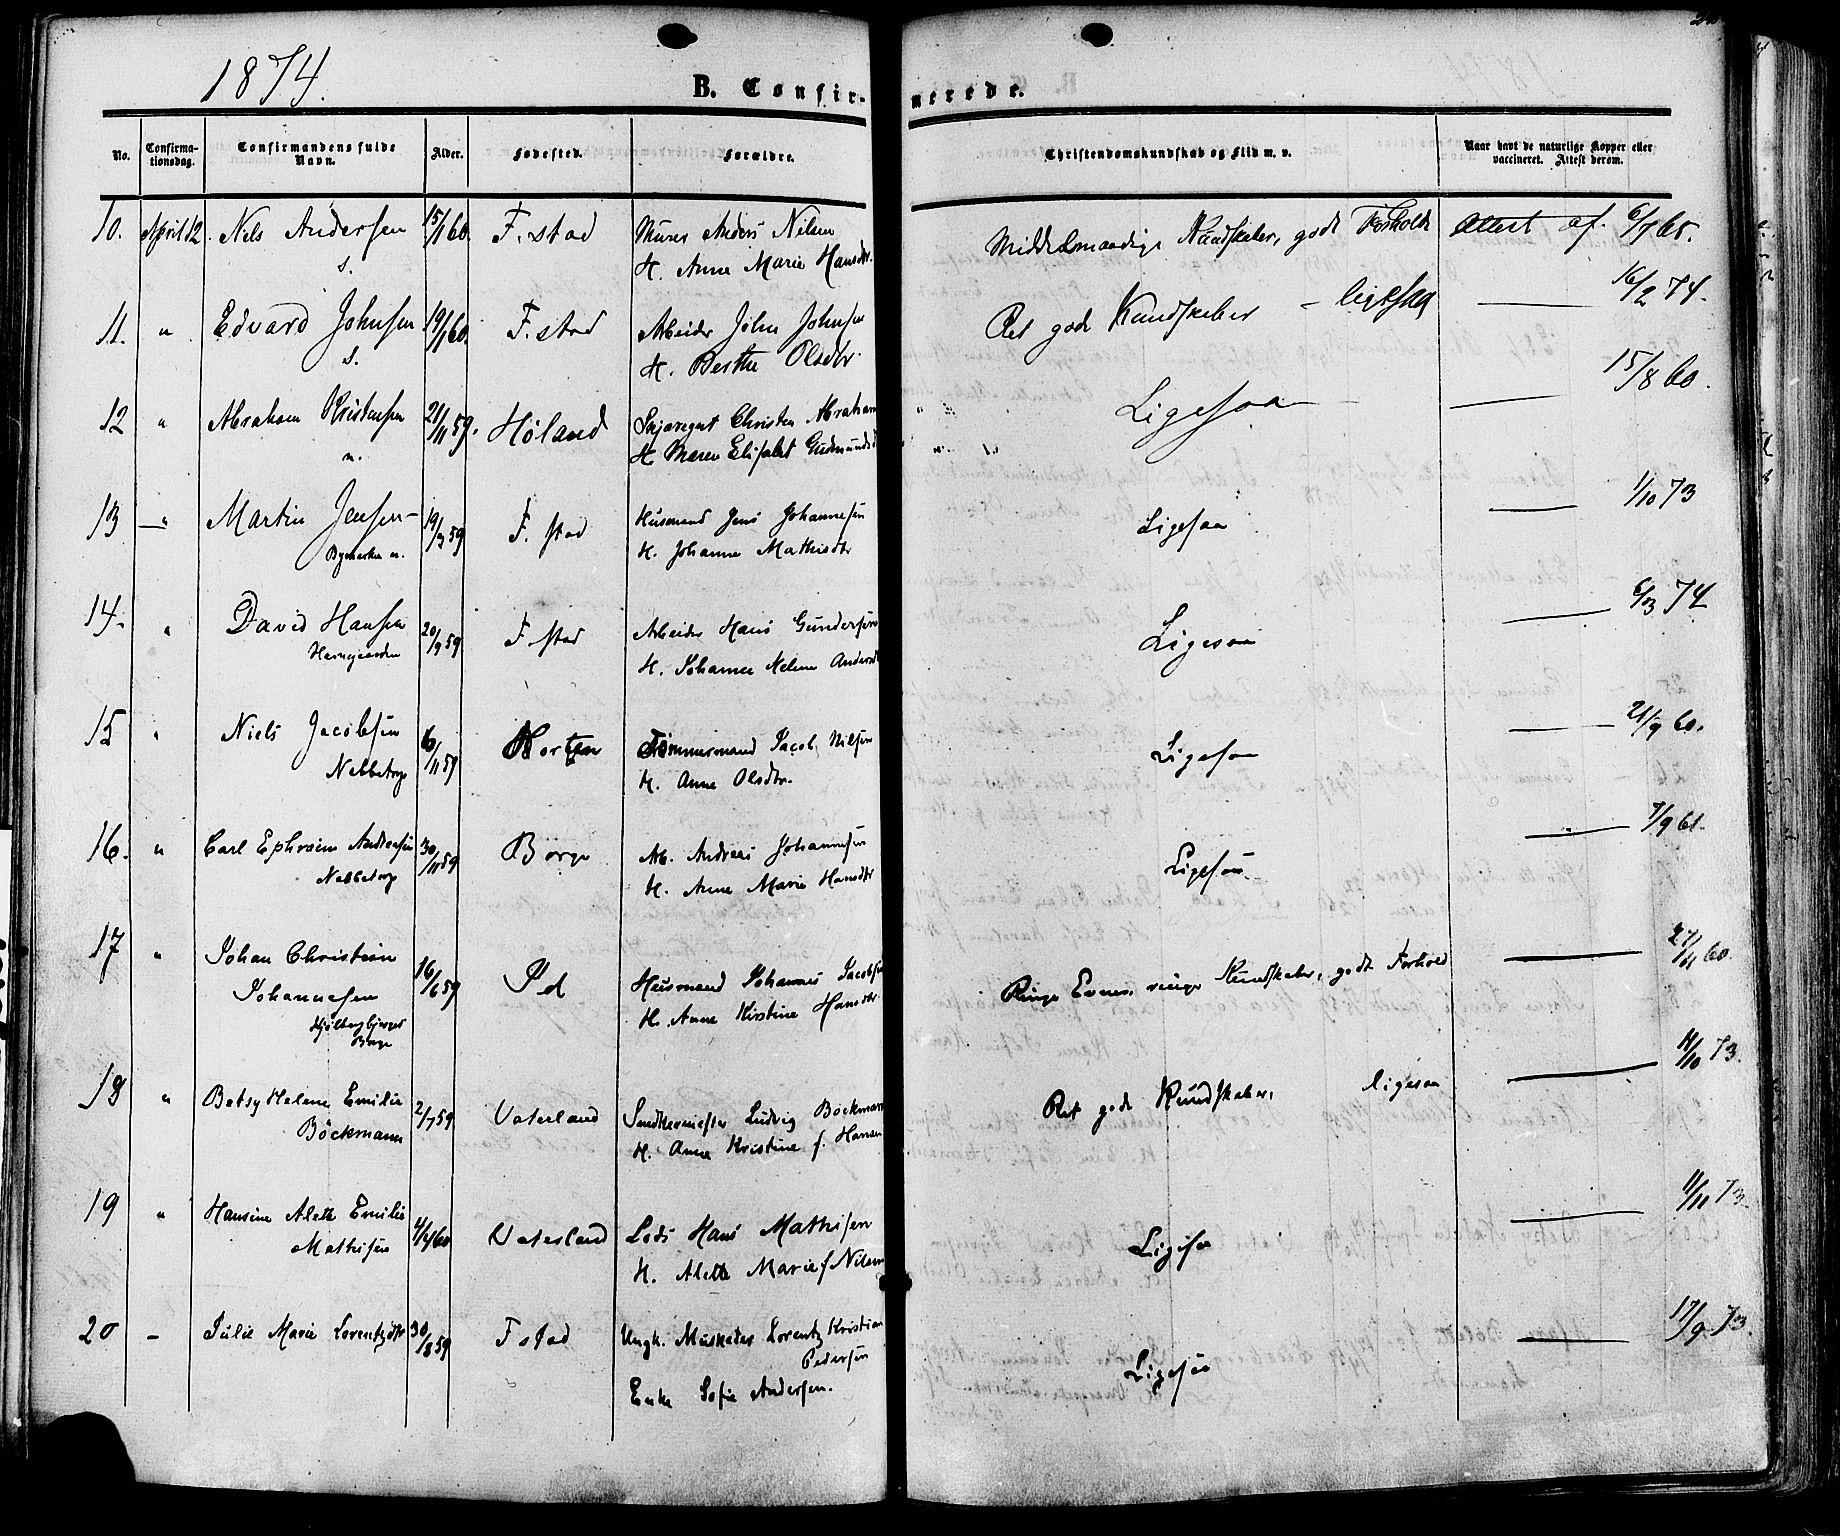 1874.
B. Confirmerede.
No. Confirmationsdag. Confirmandens fulde Navn. Alder. Fødested. Forældre. Christendomskundskab og Flid m. v. Naar havt de naturlige Kopper eller vaccineret. Attest derom.
10. April 12. Nils Andersen 15/1 60. F. stad Murer Anders Nilsen Middelmaadige Kundskaber, godt Forhold Attest af. 6/7 65.
s. H. Anne Marie Hansdtr.
11. " Edvard Johnsen 19/1 60. F. stad Arbeider John Johnsen Ret gode Kundskaber - ligesaa 16/2 74.
s. H. Berthe Olsdtr.
12 " Abraham Kristensen 21/11 59. Høland Christen Abraham Ligesaa 15/8 60.
n. H. Maren Elisabet Gudmundsd
13 " Martin Jensen 19/3 59 F. stad Husmand Jens Johannesen Ligesaa 1/10 73
Bymarken n. H. Johanne Mathisdtr
14. " David Hansen 20/9 59 F. stad Arbeider Hans Gundersen Ligesaa 6/3 74
H. Johanne Helene Andersd
15 " Niels Jacobsen 6/11 59 Horten Tømmermand Jacob Nilsen Ligesaa 21/9 60.
Nabbetorp H. Anne Olsdtr.
16. " Carl Ephraim Andreasen 30/11 59 Borge Arb. Andreas Johannesen Ligesaa 7/9 61.
Nabbetorp H. Anne Marie Hansdtr
17 " Johan Christian 16/6 59 Id Husmand Johannes Jacobsen Ringe Evner, ringe Kundskaber, godt Forhold 27/11 60.
Johannesen H. Anne Kirstine Hansdtr
Borge
18 " Betsy Helene Emilie 2/7 59 Vaterland Snedkermester Ludvig Böckmann Ret gode Kundskaber, ligesaa 14/10 73.
Böckmann H. Anne Kristine f. Hansen
19 " Hansine Alette Emilie 4/4 60 Vaterland Lods Hans Mathisen Ligesaa 11/11 73.
Mathisen H. Alette Marie f Nilsen
20 - Julie Marie Lorentzdtr 30/8 59 F stad Ungk. Musketer Lorentz Kristian Ligesaa 17/9 73.
Pedersen
Enke Sofie Andersen.